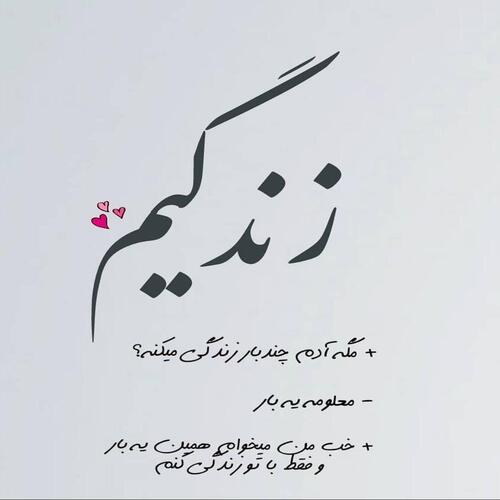 زندگیم
+ مگه آدم چندبار زندگی میکنه؟
- معلومه یه بار
+ خب من میخوام همین یه بار
و فقط با تو زندگی کنم